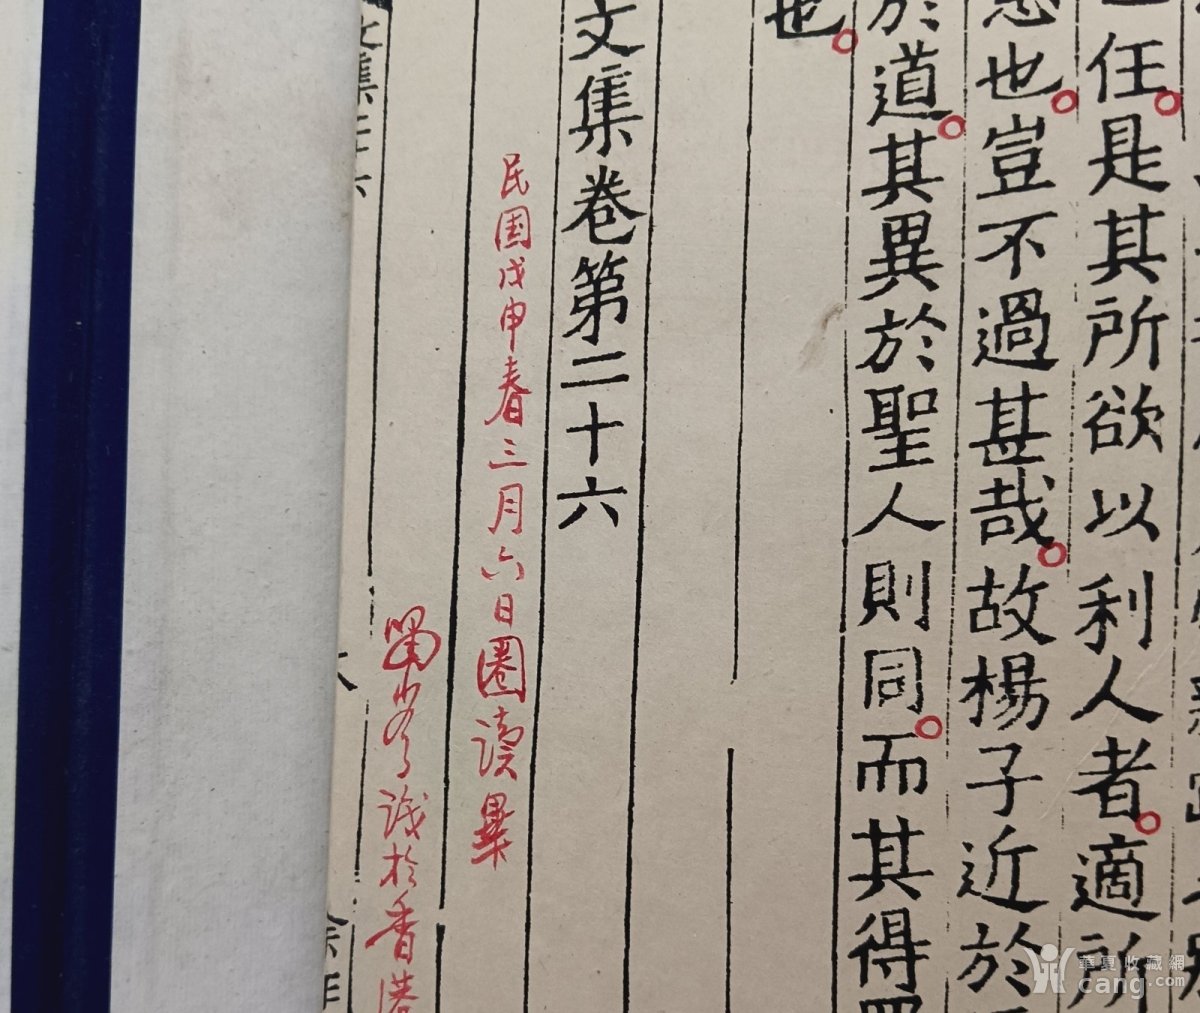 任是其所欲以利人者適所
也豈不過甚哉故楊子近於
於道其異於聖人則同而其得罪
也
文集卷第二十六
民国戊申春三月六日圈讀畢
識於香港
文集二十六
華夏收藏網
cang.com